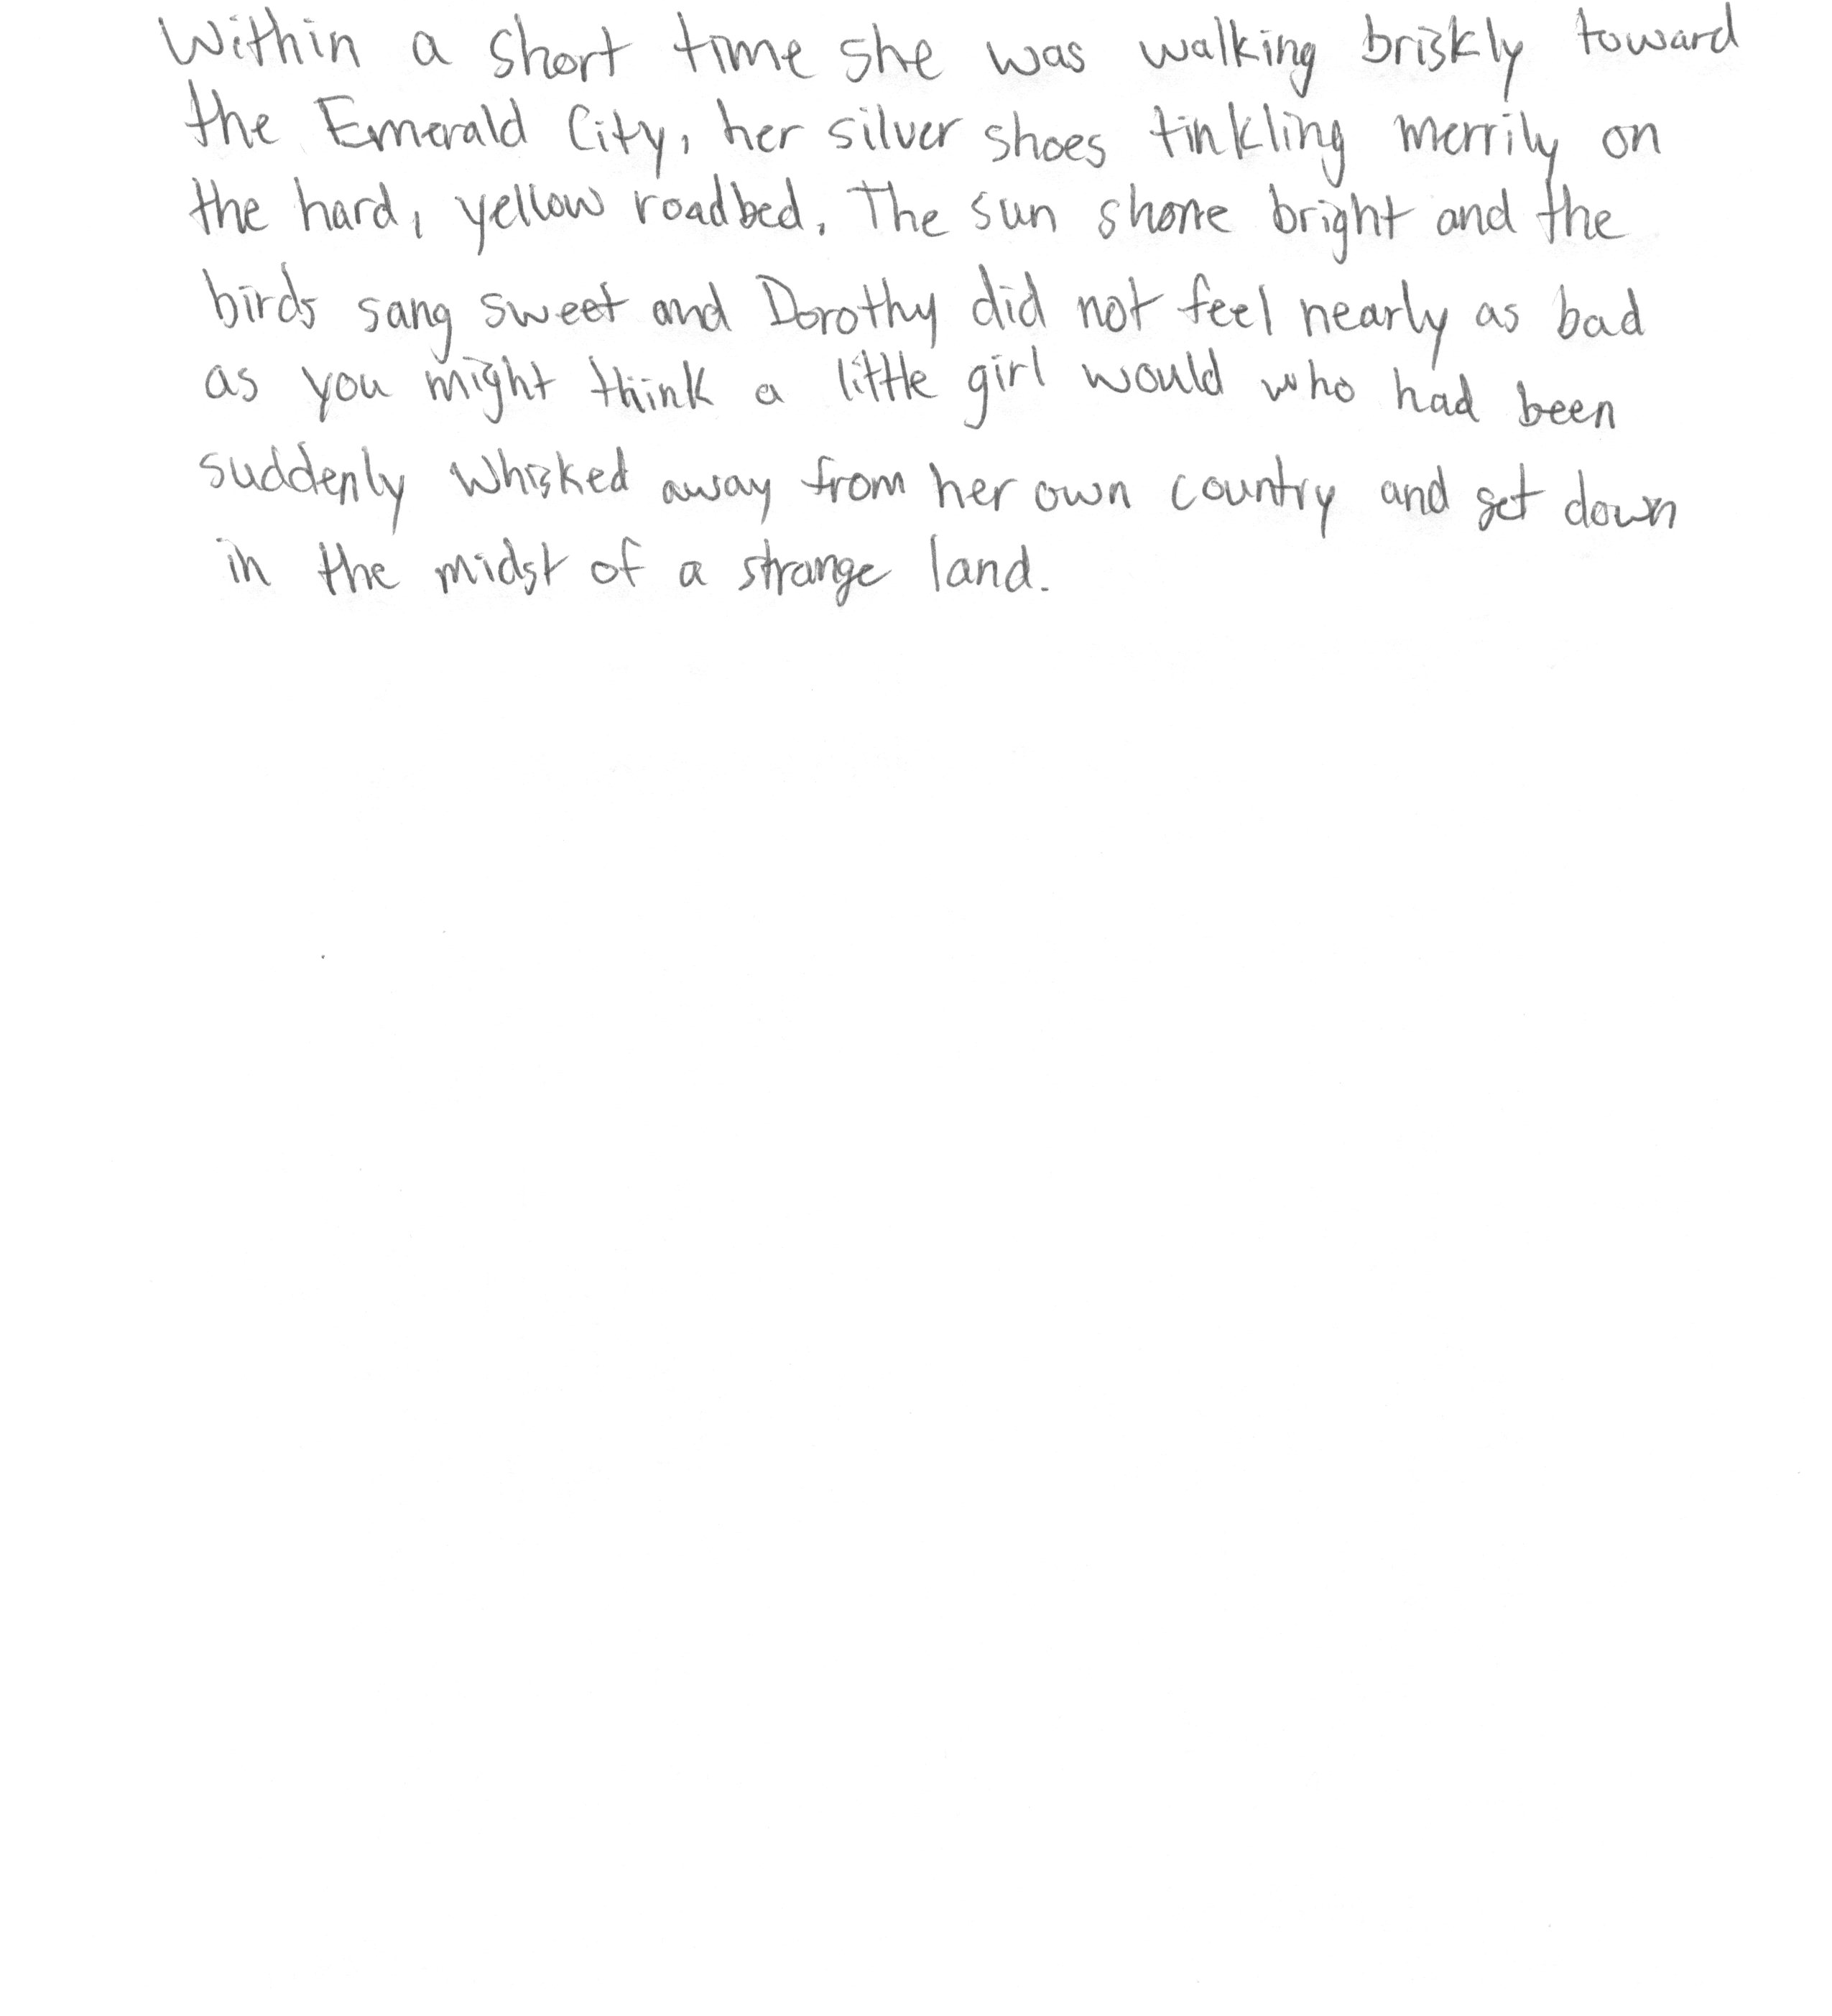 Within a short time she was walking briskly toward
the Emerald City, her silver shoes tinkling merrily on
the hard, yellow roadbed. The sun shone bright and the
birds sang sweet and Dorothy did not feel nearly as bad
as you might think a little girl would who had been
suddenly whisked away from her own country and set down
in the midst of a strange land.